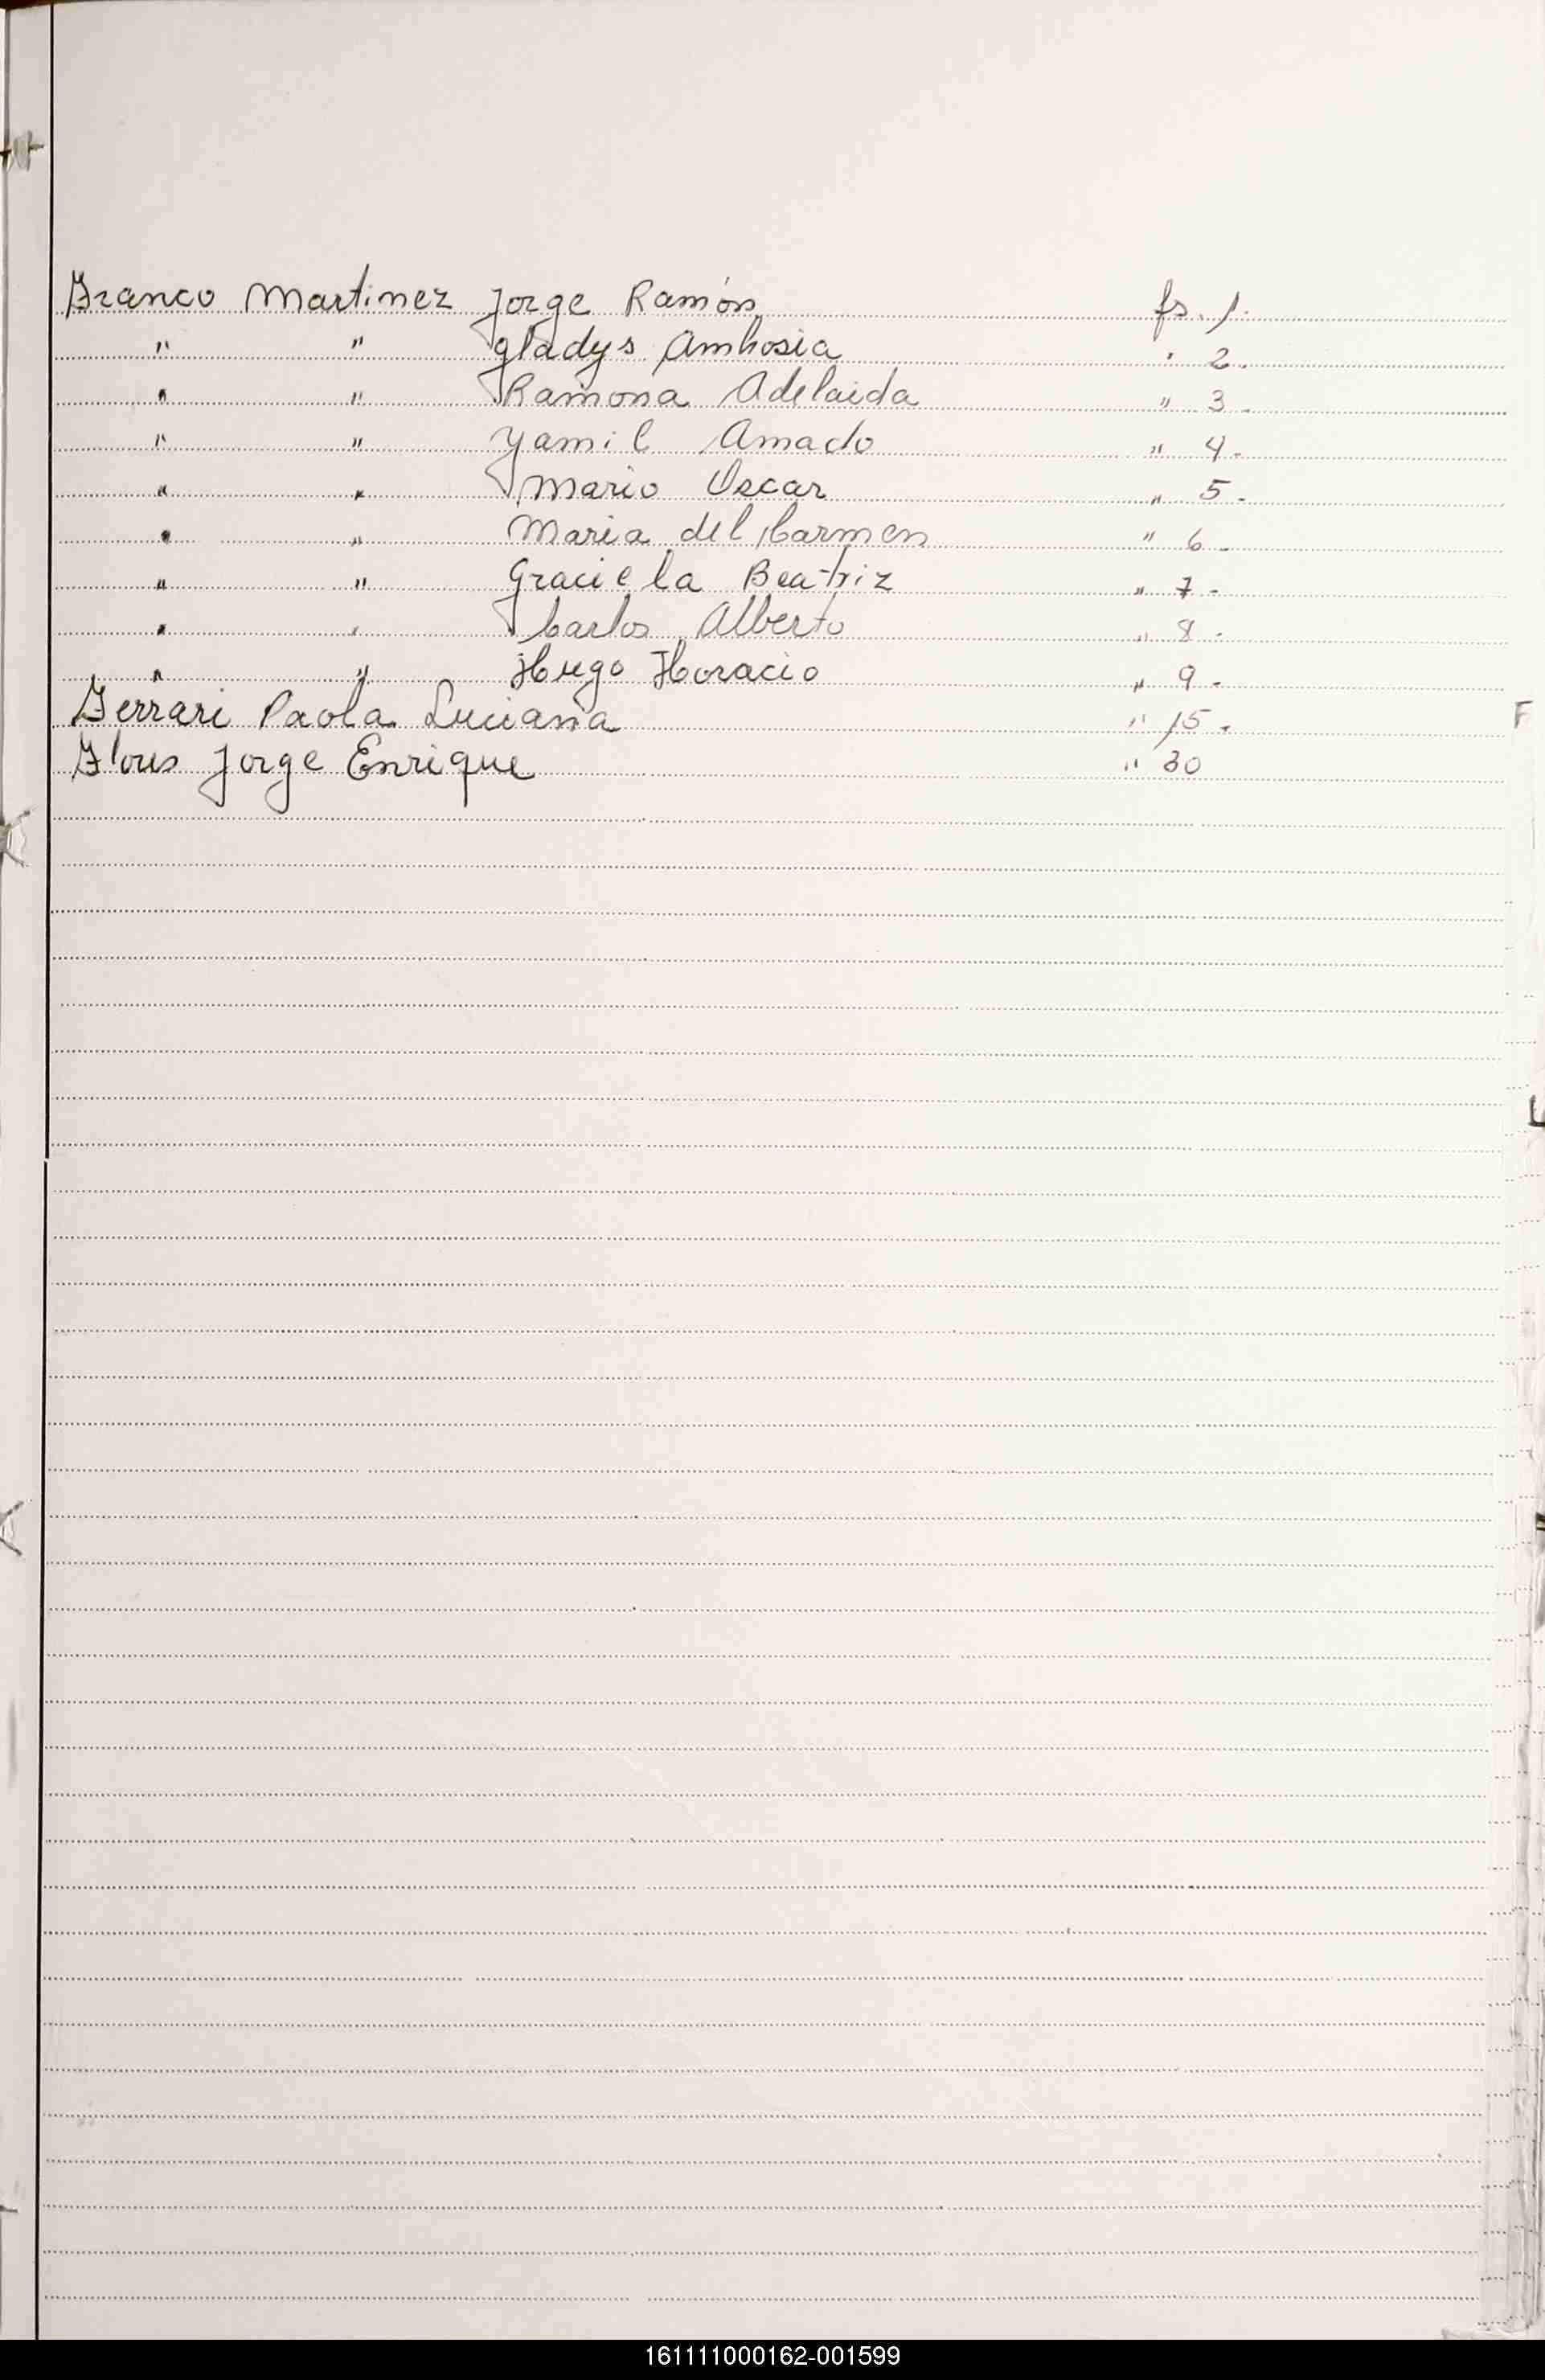 Franco Martinez Jorge Ramón fs. 1.
" " Gladys Ambrosia " 2.
" " Ramona Adelaida " 3.
" " Yamil Amado " 4.
" " Mario Oscar " 5.
" " Maria del Carmen " 6.
" " Graciela Beatriz " 7.
" " Carlos Alberto " 8.
" " Hugo Horacio " 9.
Ferrari Paola Luciana " 15.
Flores Jorge Enrique " 30
F
161111000162-001599